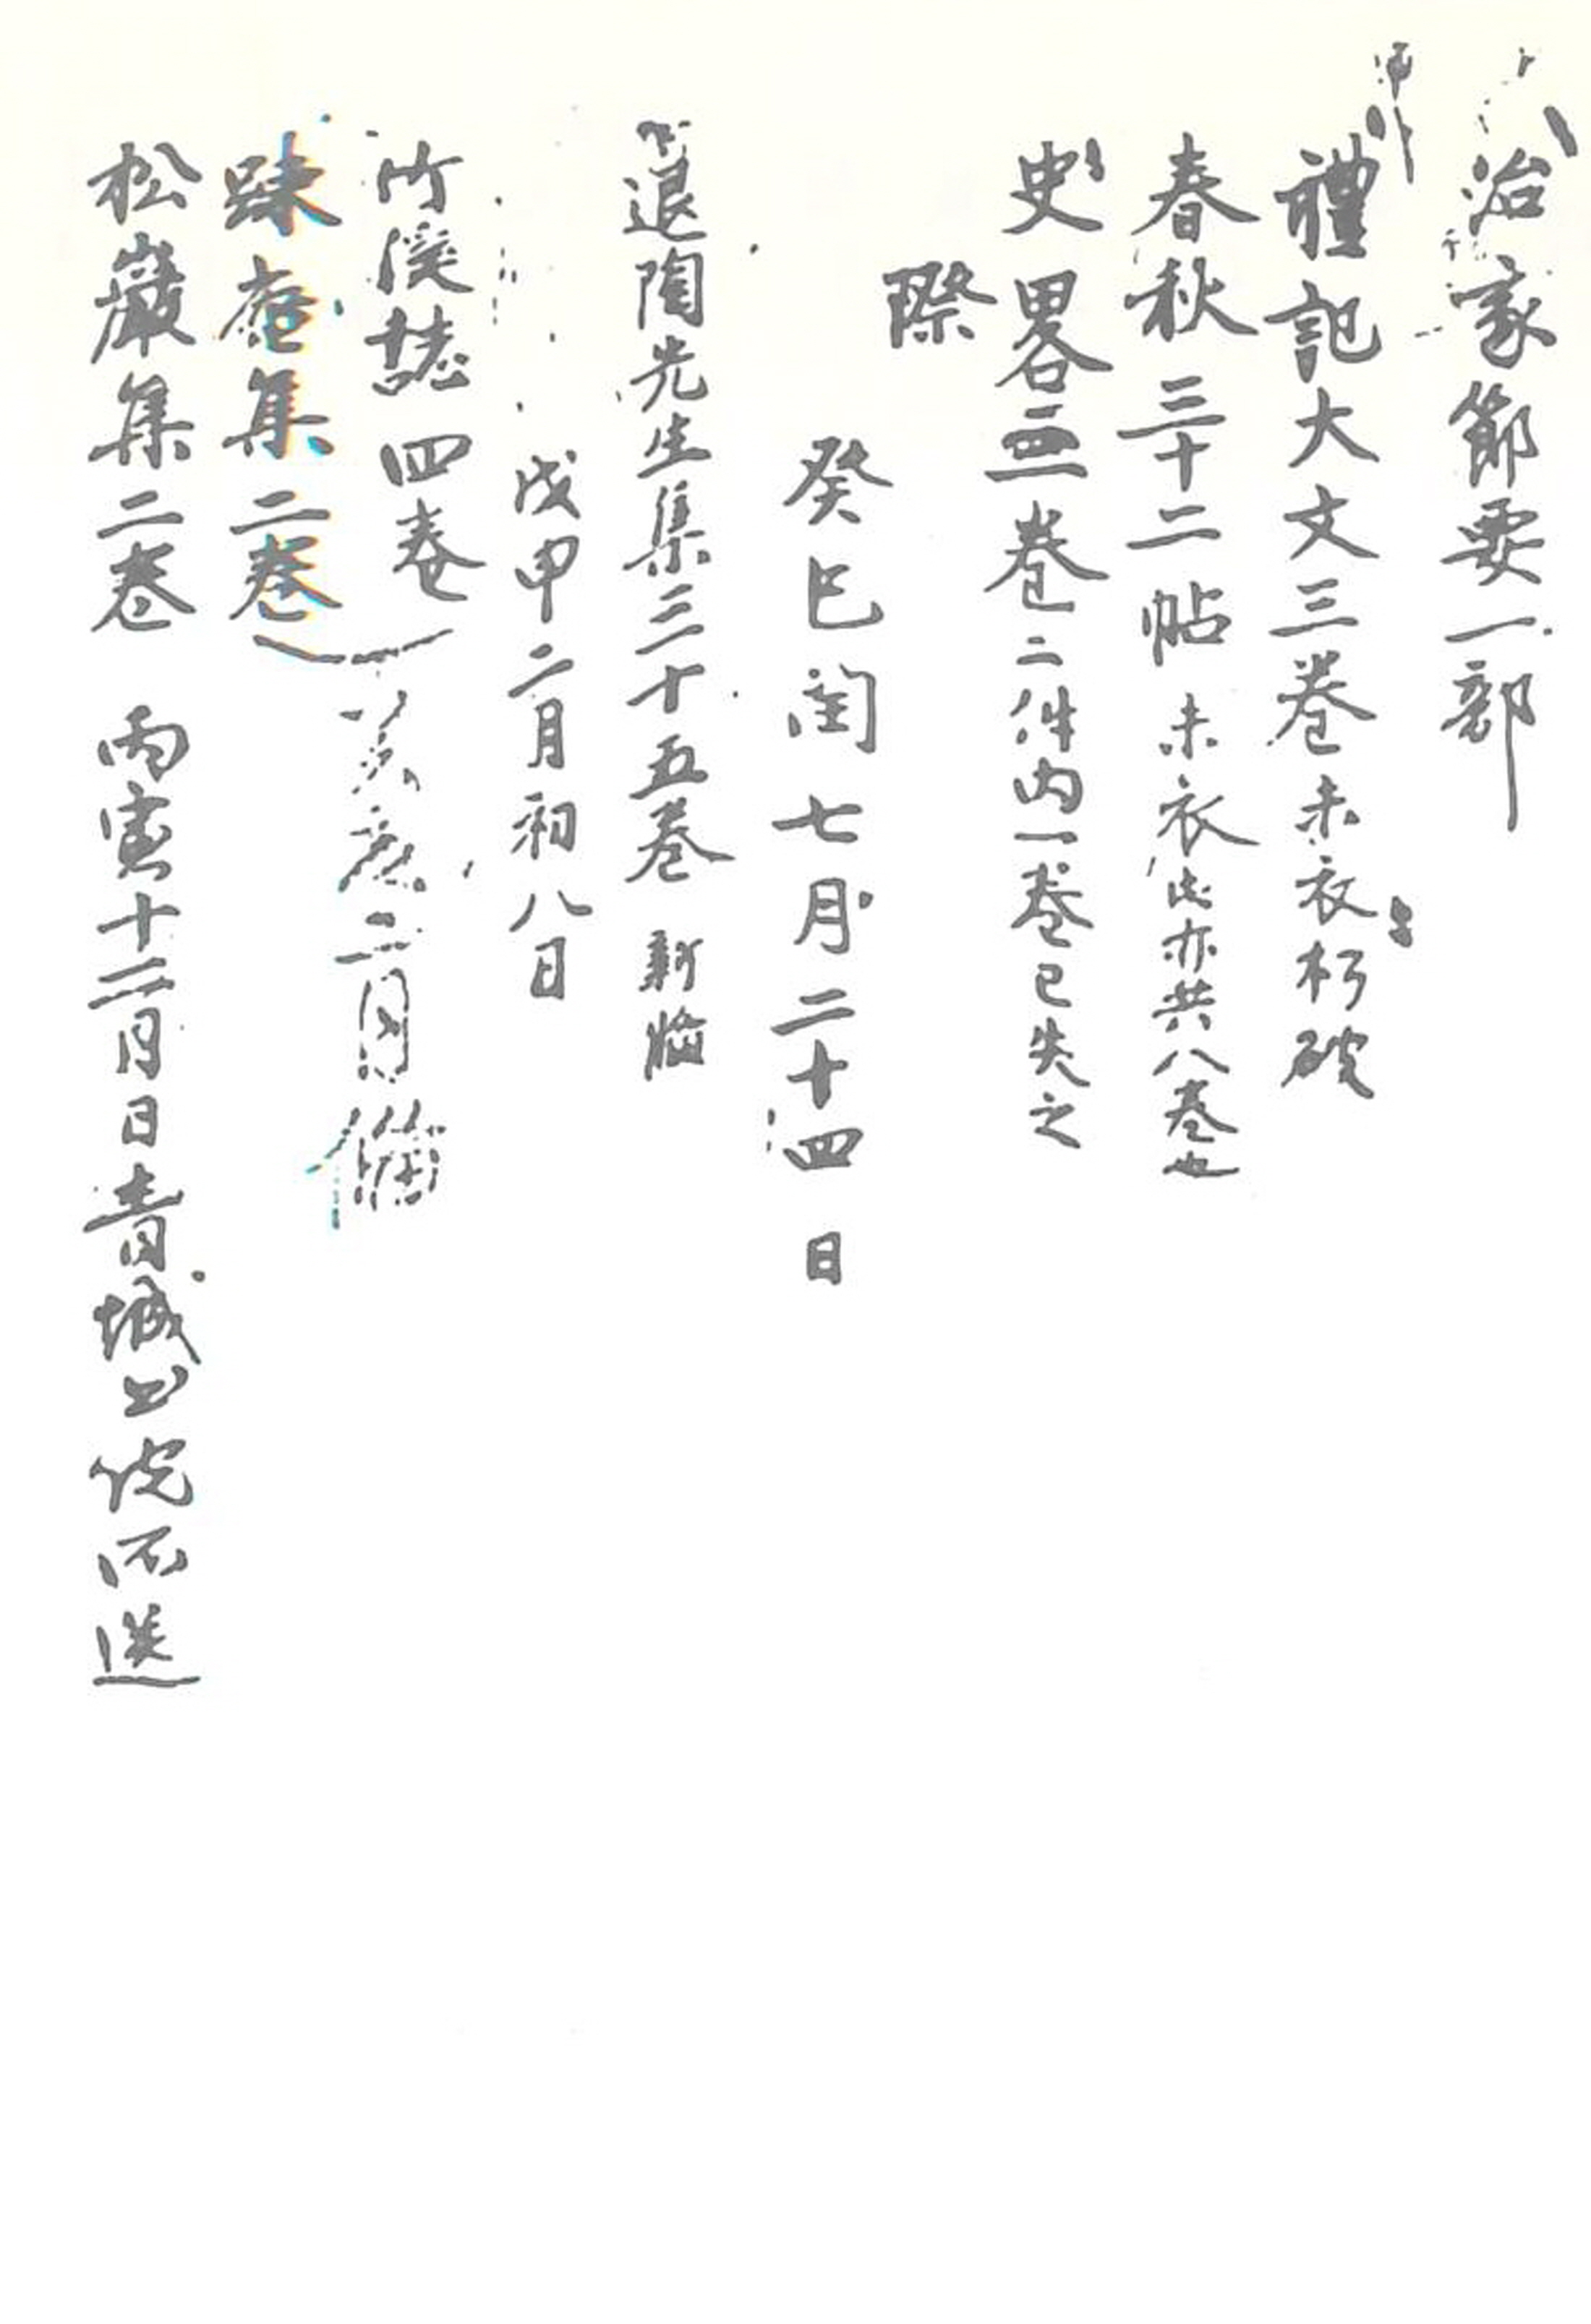 治家節要一部
禮記大文三卷未衣朽破
春秋三十二帖未衣此亦共八卷也
史畧三卷二件內一卷已失之
際
癸巳閏七月二十四日
退陶先生集三十五卷新粧
戊申二月初八日
竹溪誌四卷
疎庵集二卷
二月備
松巖集二卷 丙寅十二月日青城書院所送